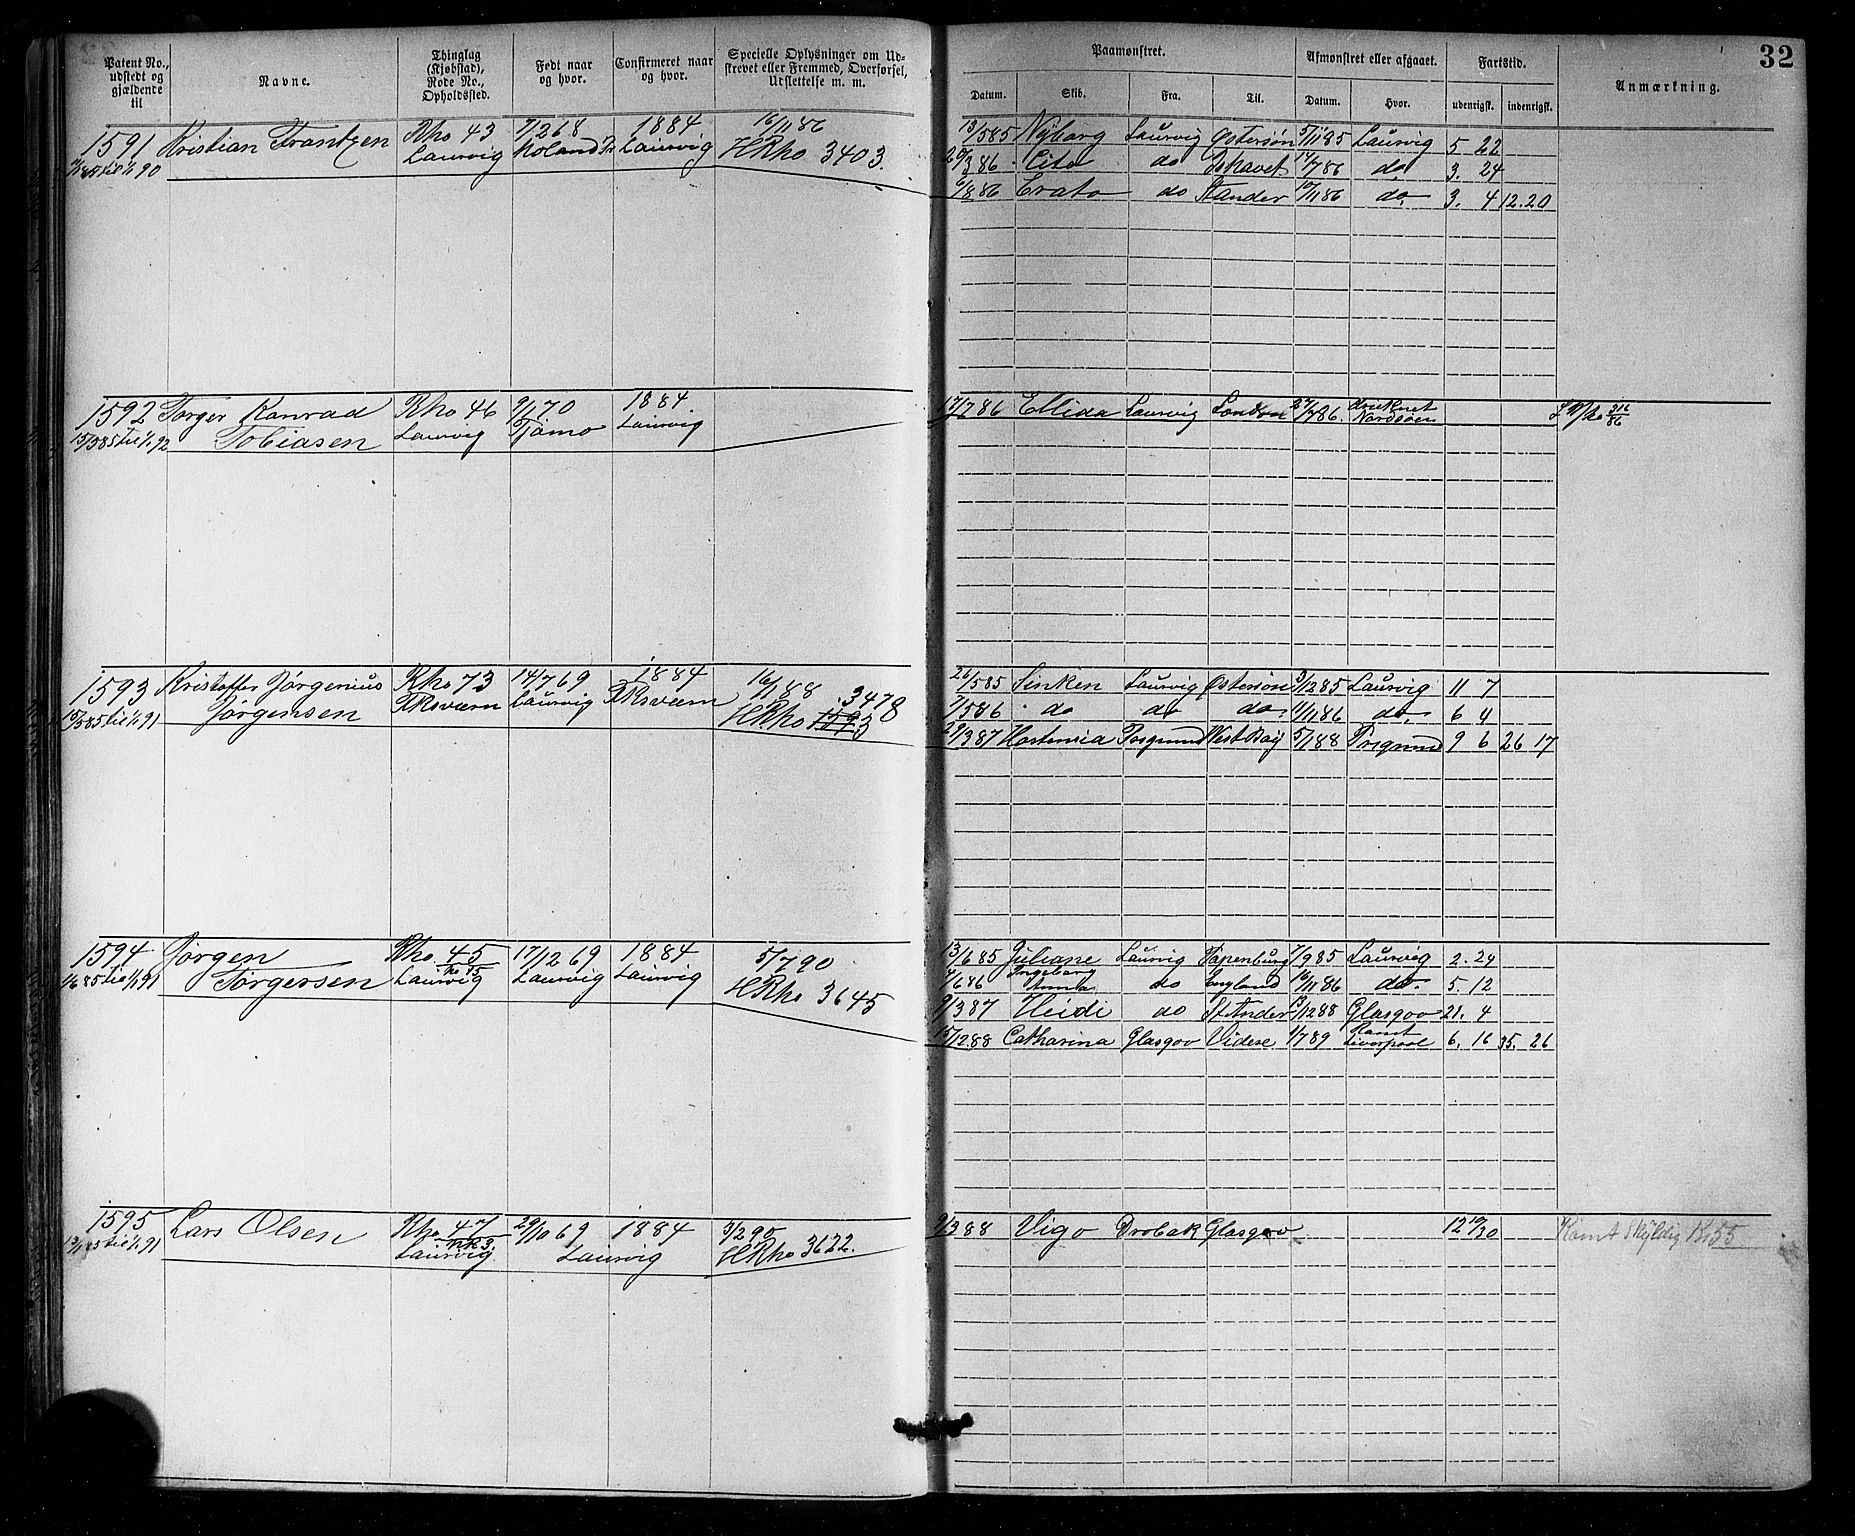 32
Patent No., udstedt og gjældende til
Navne.
Thinglag (Kjøbstad), Rode No., Opholdssted.
Født naar og hvor.
Confirmeret naar og hvor.
Specielle Oplysninger om Udskrevet eller Fremmed, Overførsel, Udslettelse m. m.
Paamønstret.
Afmønstret eller afgaaet.
Fartstid.
Anmærkning.
Datum. Skib. Fra. Til. Datum. Hvor. udenrigsk. indenrigsk.
1591 Kristian Frantzen Rno 43 7/2 68 1884 16/11 86
til 1/1 90 Laurvig Laurvig HRno 3403.
13/5 85 Nyborg Laurvig Østersøn 5/11 85 Laurvig 5 22
26/3 86 Cito do Ishavet 14/7 86 do 3. 24
6/8 86 Erato do St Ander 10/11 86 do. 3. 4 12.20
1592 Torger Konrad Rno 46 9/1 70 1884.
15/3 85 til 1/1 92 Tobiasen Laurvig Tjømø Laurvig
17/7 86 Ellida Laurvig London 27/7 86. druknet Nordsøen
1593 Kristoffer Jørgenius Rno 73 14/7 69 1884 16/1 88 3478
15/5 85 til 1/1 91 Jørgensen FKsværn Laurvig FKsværn HRno 1593
26/5 85 Sinken Laurvig Østersøn 3/12 85 Laurvig 11 7
7/5 86 do do do. 11/11 86 do. 6 4
29/3 87 Hortensia Porsgrund West Bay 5/1 88 Porsgrund 9 6 26 17
1594 Jørgen Rno. 45 17/12 69 1884 5/7 90
1/6 85 til 1/1 91 Torgersen No 15 Laurvig Laurvig Laurvig HRno 3645
13/6 85 Juliane Laurvig Papenburg 7/9 85 Laurvig 2. 24
4/6 86 Ingeborg Anna do England 10/11 86 do. 5. 12
9/3 87 Heidi do St Ander 13/12 88 Glasgov 21. 4
15/12 88 Catharina Glasgov Videre 1/7 89 Rømt Liverpool 6. 16 35. 26
1595 Lars Olsen Rno 47 29/10 69 1884 3/2 90
til 1/1 91 Laurvig Laurvig HRno 3622.
9/3 88 Vigo Drøbak Glasgov 12 19/30 Rømt Skyldig Kr 55